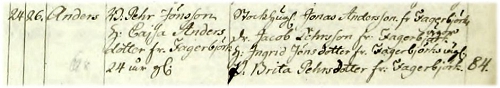 24. 26. Anders
B. Pehr Jönsson
H. Cajsa Anders
dotter fr. Fagerbjörk
24 år gl.
Jonas Andersson fr. Fagerbjörk
Dr. Jacob Pehrsson fr. Fagerbjörk
H. Ingrid Jönsdotter fr. Fagerbjörk
P. Brita Pehrsdotter fr. Fagerbjörk. 84.